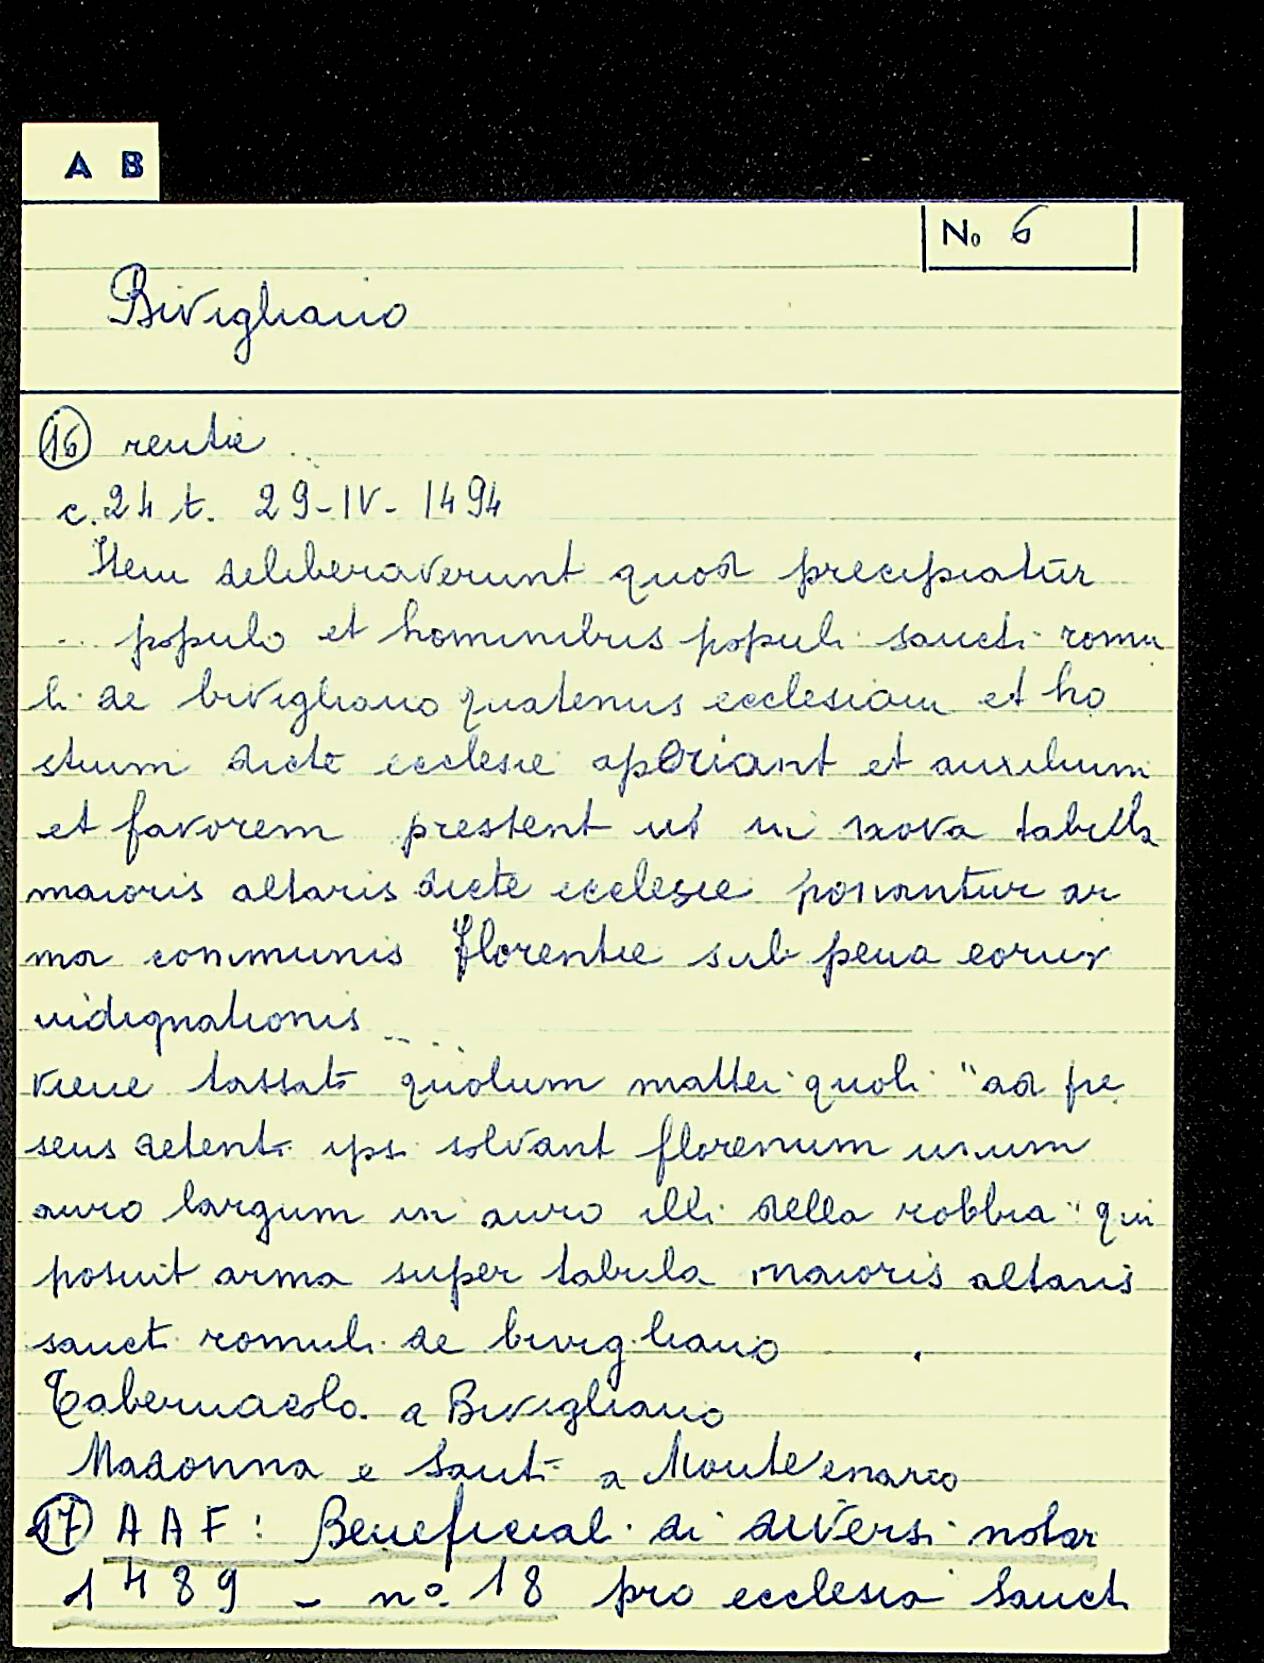 A B
No 6
Bivigliano
16 rentie ..
c. 24 t. 29-IV-1494
Item deliberaverunt quod precipiatur
... populo et hominibus populi sancti romu
li de bivigliano quatenus ecclesiam et ho
stium dicte ecclesie aperiant et auxilium
et favorem prestent ut in nova tabula
maioris altaris dicte ecclesie ponantur ar
ma communis florentie sub pena eorum
indignationis ....
viene tassato quolum mattei quoli "ad pre
sens detenti ipsi solvant florenum unum
auro largum in auro illi della robbia" qui
posuit arma super tabula maioris altaris
sancti romuli de bivigliano .
Tabernacolo a Bivigliano
Madonna e Santi a Montesenario
17 AAF: Beneficiali di diversi notar
1489 - no. 18 pro ecclesia Sancti